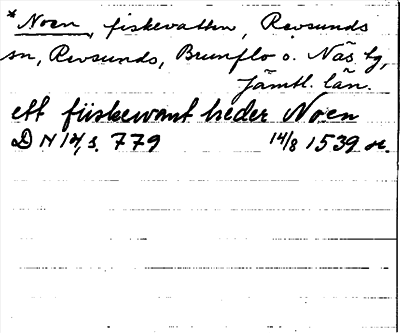 * Noen, fiskevatten, Revsunds
sn, Revsunds, Brunflo o. Näs tg,
Jämtl. län.
ett fiiskewant heder Noen
D N 14, s. 779 14/8 1539 or.